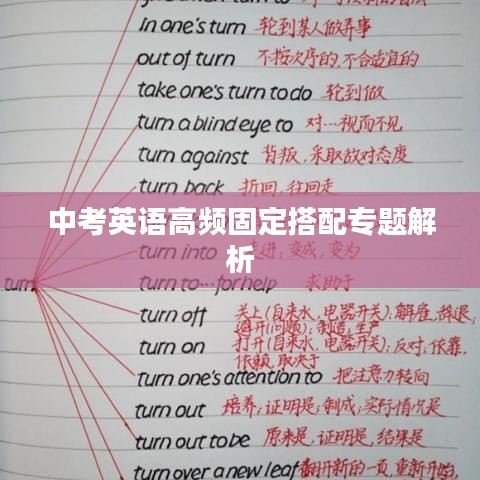 in one's turn 轮到某人做某事
out of turn 不按次序的,不合适宜的
take one's turn to do 轮到做
turn a blind eye to 对…视而不见
turn against 背叛,采取敌对态度
turn back 折回,往回走
中考英语高频固定搭配专题解
析
turn into 变成,变为
turn to…for help 求助于
turn
turn off 关上(自来水,电器开关);解雇,辞退;
避开(问题);制造,生产
turn on 打开(自来水,电器开关);反对,依靠,
依赖,取决于
turn one's attention to 把注意力转向
turn out 培养;证明是;制成;实际情况是
turn out to be 原来是,证明是,结果是
turn over a new leaf 翻开新的一页,重新开始,